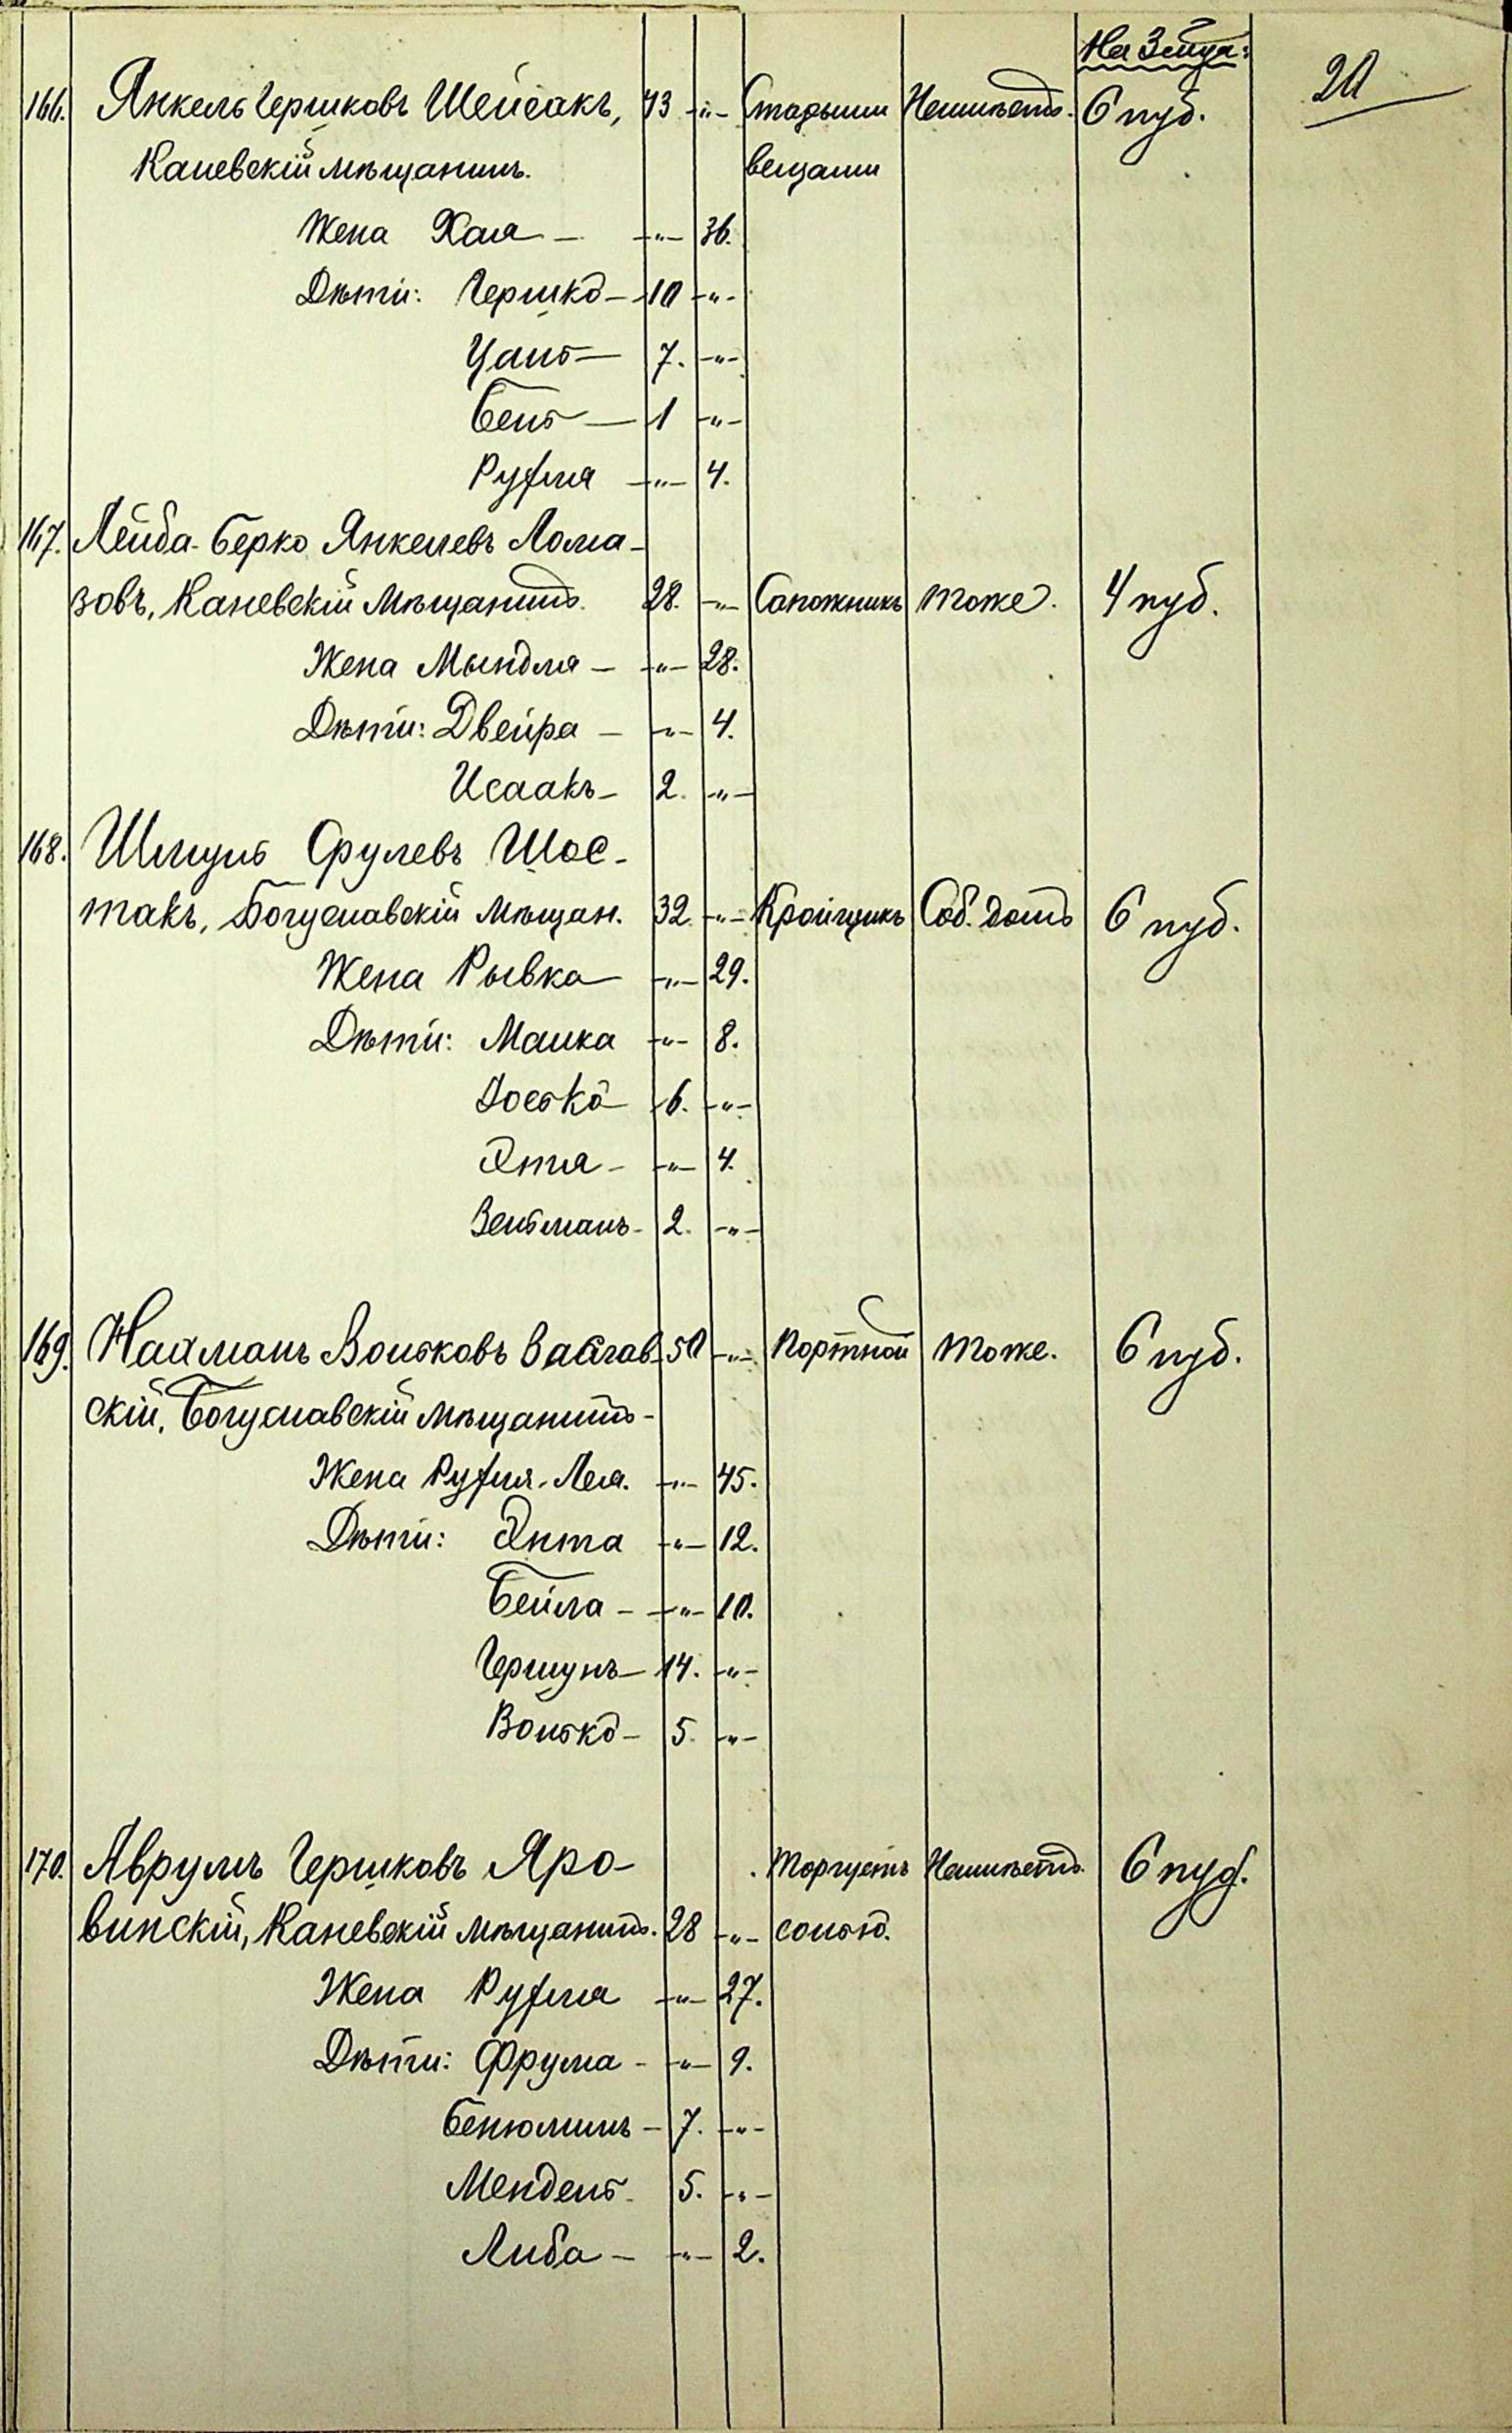 На 3 лица:
20
166. Янкель Гершковъ Шейсакъ, 43 -"- Старыми Неимѣетъ. 6 руб.
Каневскій мѣщанинъ. вещами
Жена Хая — -"- 36.
Дѣти: Гершко — 10 -"-
Цаль — 7. -"-
Бень — 1 -"-
Рухля -"- 4.
167. Лейба-Берко Янкелевъ Лома-
зовъ, Каневскій Мѣщанинъ. 28. -"- Сапожникъ тоже. 4 руб.
Жена Мындля — -"- 28.
Дѣти: Двейра — -"- 4.
Исаакъ — 2. -"-
168. Шмуль Срулевъ Шос-
такъ, Богуславскій Мѣщан. 32 -"- Кройщикъ Соб. домъ 6 руб.
Жена Рывка -"- 29.
Дѣти: Малка -"- 8.
Іоська 6. -"-
Этля -"- 4.
Зельманъ 2. -"-
169. Нахманъ Вольковъ 50 -"- Портной тоже. 6 руб.
скій, Богуславскій мѣщанинъ -
Жена Рухля-Лея. -"- 45.
Дѣти: Энта -"- 12.
Бейла -"- 10.
Гершунъ — 14. -"-
Волько — 5. -"-
170. Аврумъ Гершковъ Яро- Торгуетъ Неимѣетъ. 6 руб.
винскій, Каневскій мѣщанинъ. 28 -"- солью.
Жена Рухля -"- 27.
Дѣти: Фрума -"- 9.
Бенюминъ — 7. -"-
Мендель 5. -"-
Либа — -"- 2.